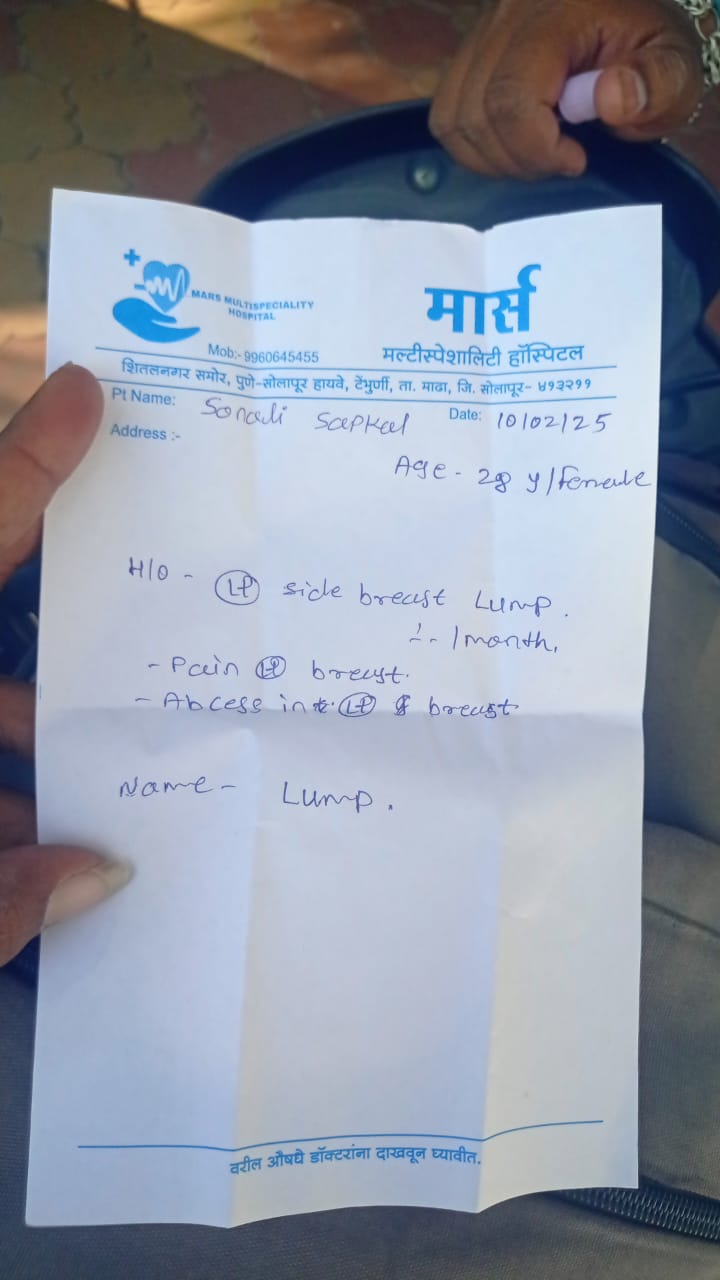 MARS MULTISPECIALITY
HOSPITAL
मार्स
Mob:- 9960645455
मल्टीस्पेशालिटी हॉस्पिटल
शितलनगर समोर, पुणे-सोलापूर हायवे, टेंभुर्णी, ता. माढा, जि. सोलापूर- ४१३२११
Pt Name: Sonali Sapkal Date: 10/02/25
Address :-
Age - 28 y/female
H/O - Lt side breast Lump.
1month.
- Pain Lt breast.
- Abcess in Lt breast
Name - Lump.
वरील औषधे डॉक्टरांना दाखवून घ्यावीत.